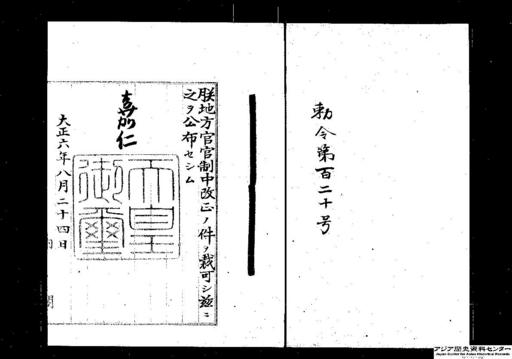 勅令第百二十号
朕地方官官制中改正ノ件ヲ裁可シ茲ニ
之ヲ公布セシム
嘉仁
天皇
御璽
大正六年八月二十四日
アジア歴史資料センター
Japan Center for Asian Historical Records